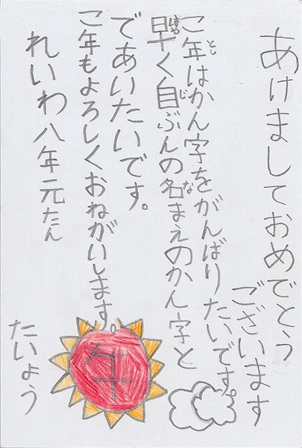 あけましておめでとう
ございます
こ年はかん字をがんばりたいです。
とし
早く自ぶんの名まえのかん字と
はや
じ
な
であいたいです。
こ年もよろしくおねがいします。
れいわ八年元たん
たいよう
午